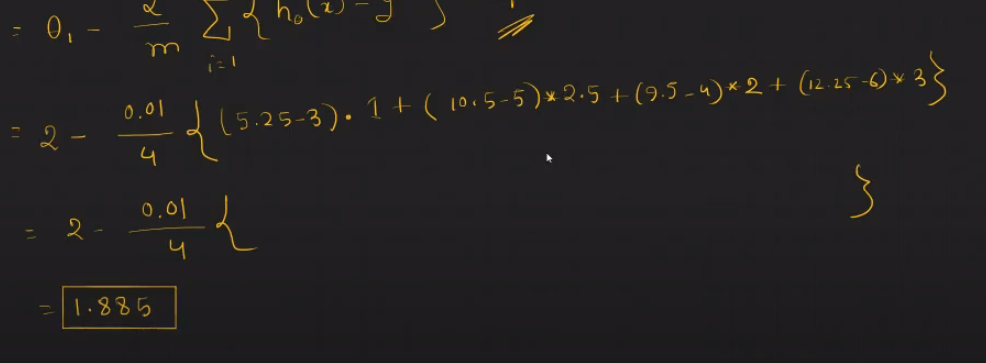 = θ₁ - α/m Σ i=1 { h₀(x) - y }
= 2 - 0.01/4 { (5.25-3). 1 + ( 10.5-5)*2.5 + (9.5-4)*2 + (12.25-6)*3 }
= 2 - 0.01/4 { }
= 1.885